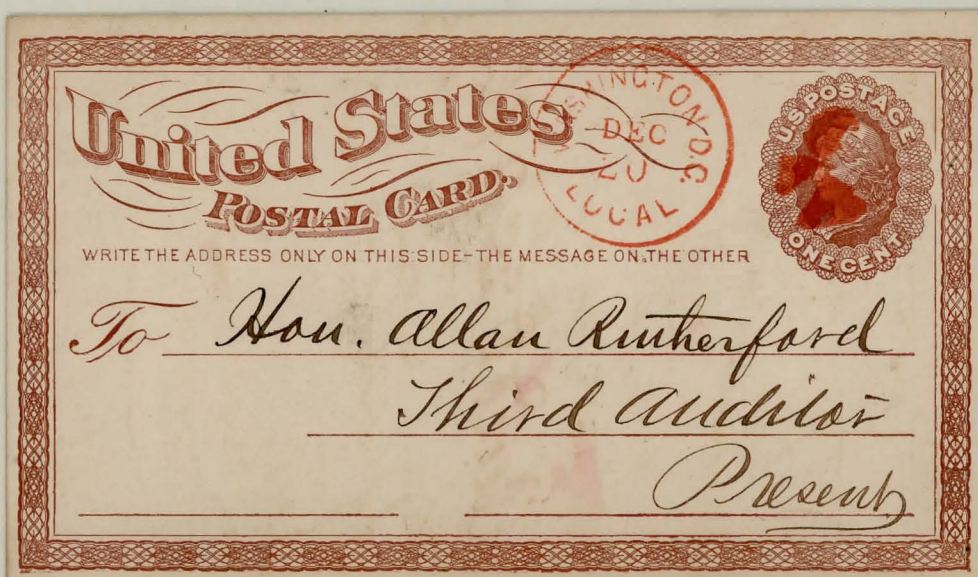 United States
POSTAL CARD.
WASHINGTON, D.C.
DEC
20
LOCAL
U.S. POSTAGE
ONE CENT
WRITE THE ADDRESS ONLY ON THIS SIDE-THE MESSAGE ON THE OTHER
To Hon. Allan Rutherford
Third Auditor
Present